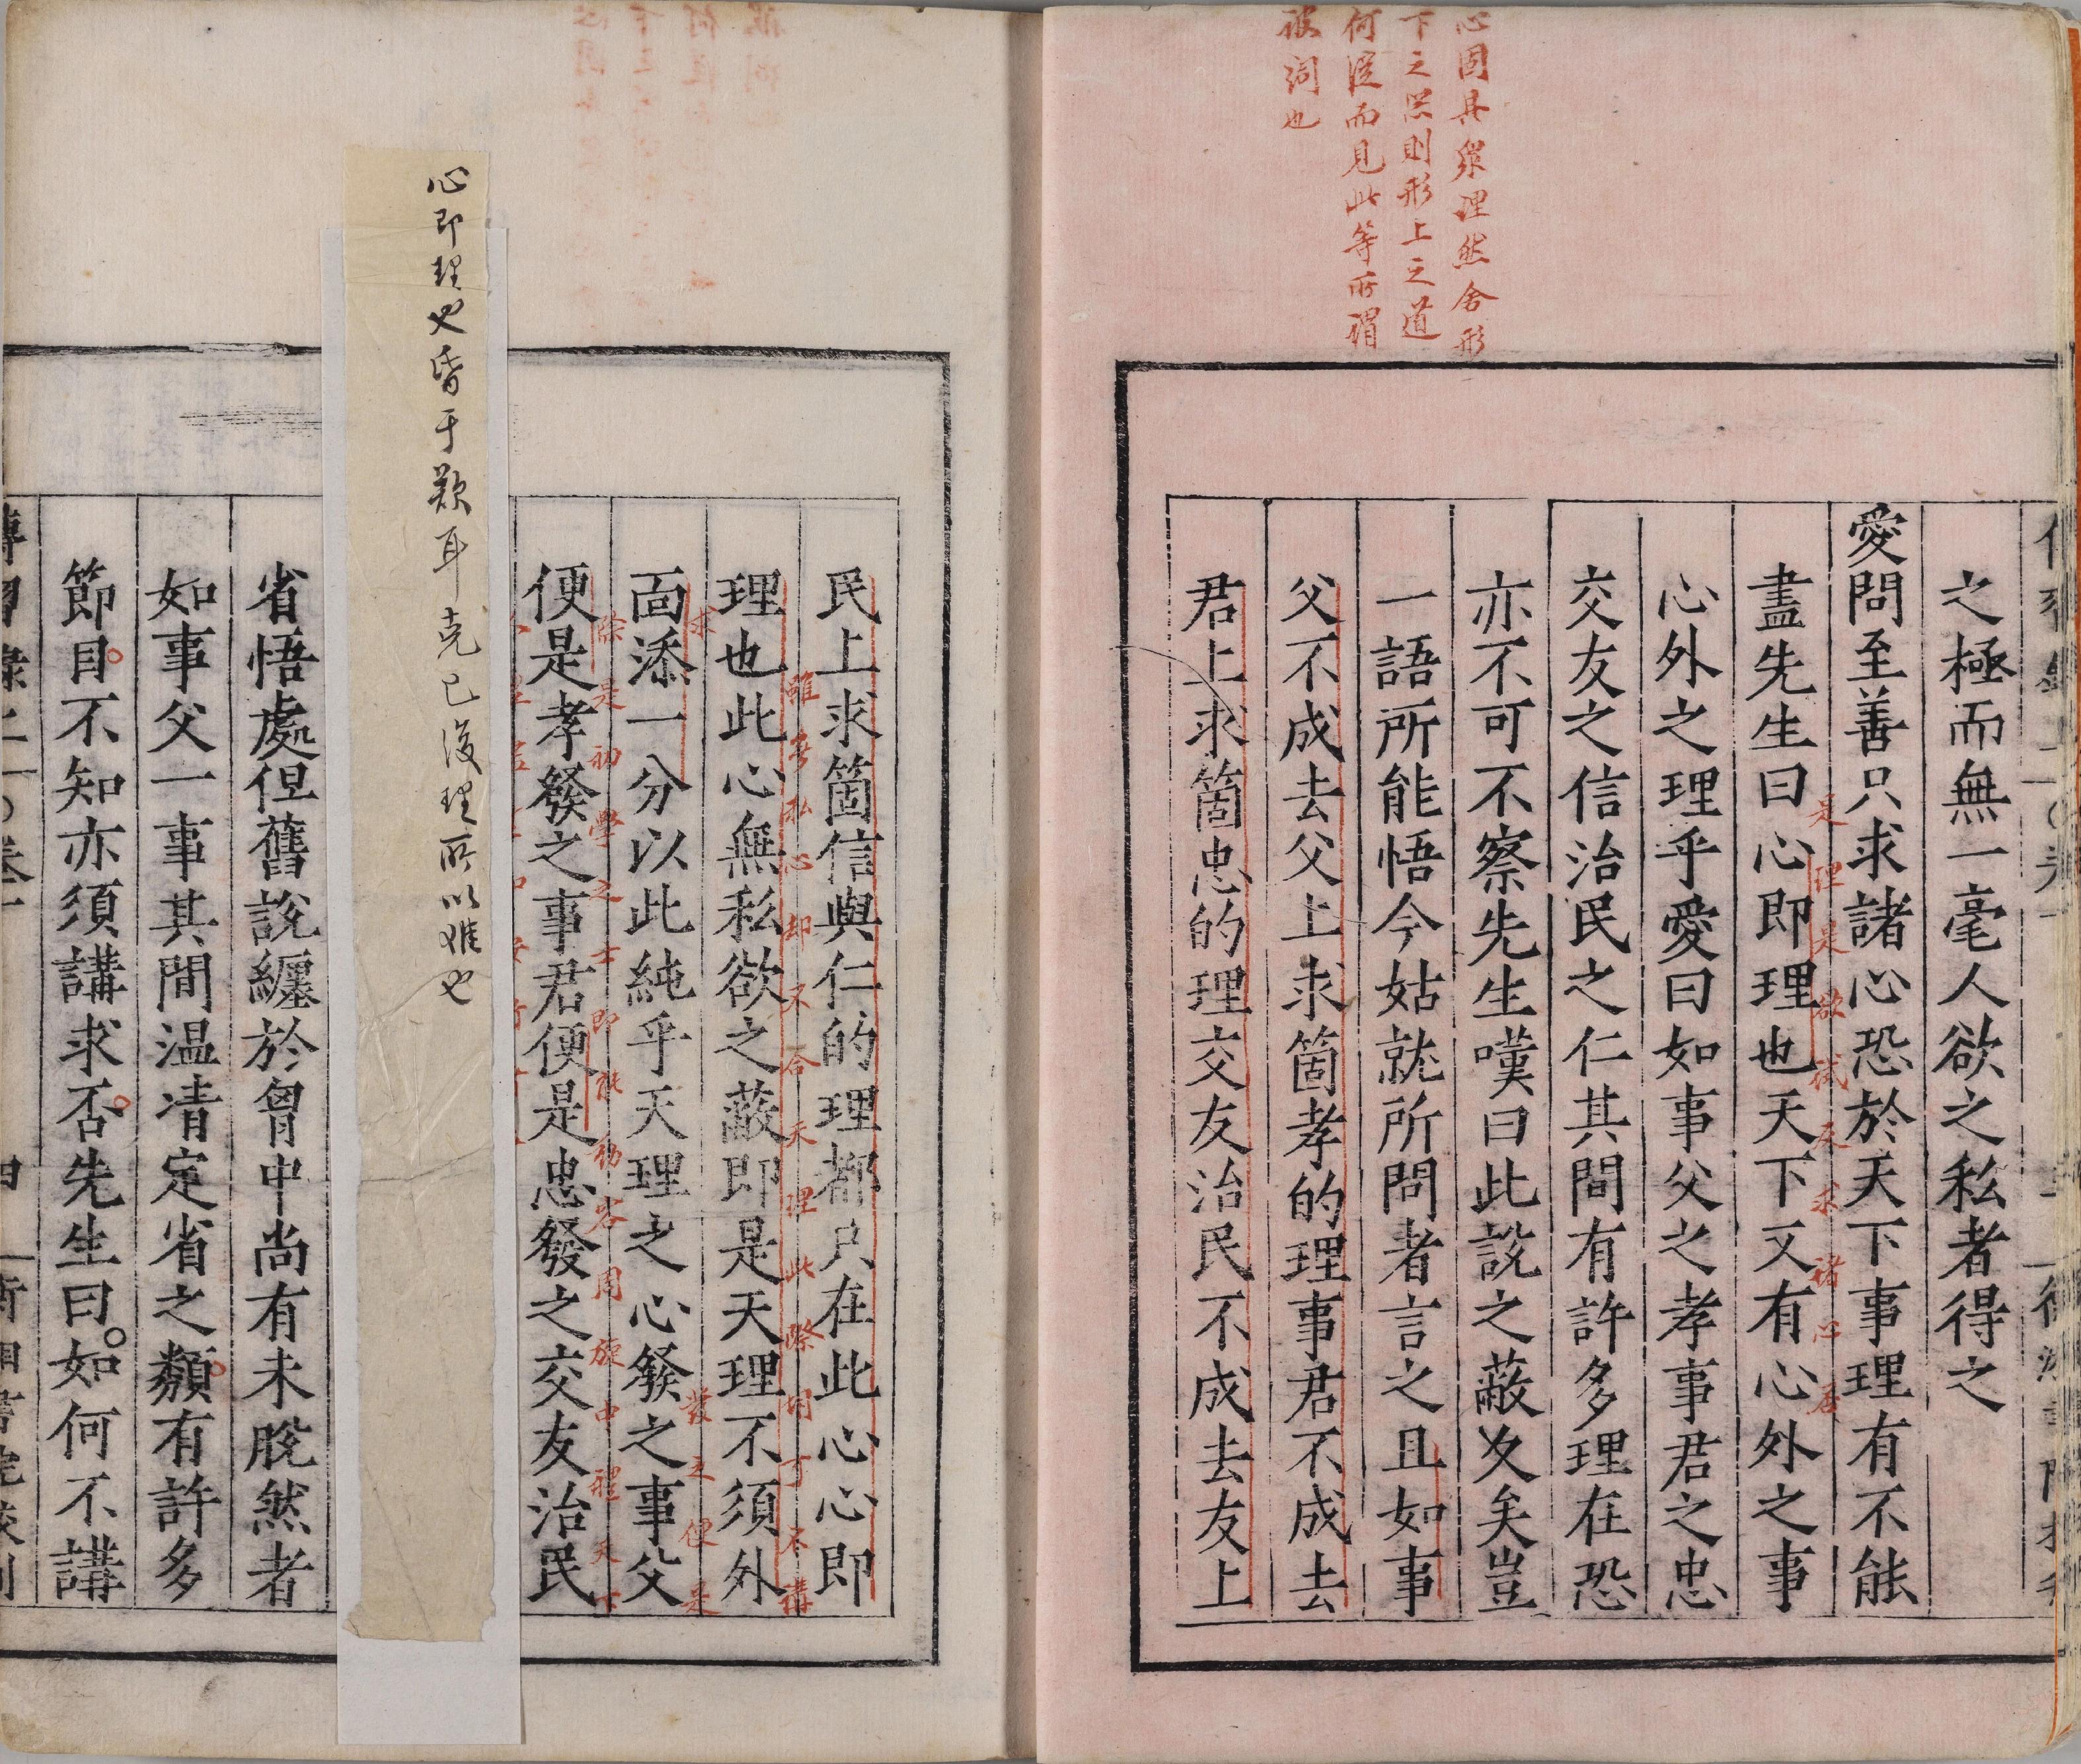 心固具衆理然舍形
下之器則形上之道
何從而見此等所謂
被詞也
之極而無一毫人欲之私者得之
愛問至善只求諸心恐於天下事理有不能
是理是欲試反求諸心若
盡先生曰心即理也天下又有心外之事
心外之理乎愛曰如事父之孝事君之忠
交友之信治民之仁其間有許多理在恐
亦不可不察先生嘆曰此說之蔽久矣豈
一語所能悟今姑就所問者言之且如事
父不成去父上求箇孝的理事君不成去
君上求箇忠的理交友治民不成去友上
民上求箇信與仁的理都只在此心心即
雖無私心却不合天理此際間可不講
理也此心無私欲之蔽即是天理不須外
求
面添一分以此純乎天理之心發之事父
發之便是
除是初學之士即能動容周旋中禮天下
便是孝發之事君便是忠發之交友治民
心即理也昏于欺耳克己復理所以難也
省悟處但舊說纏於胷中尚有未脫然者
如事父一事其間温凊定省之類有許多
節目不知亦須講求否先生曰如何不講
傳習錄上 卷一